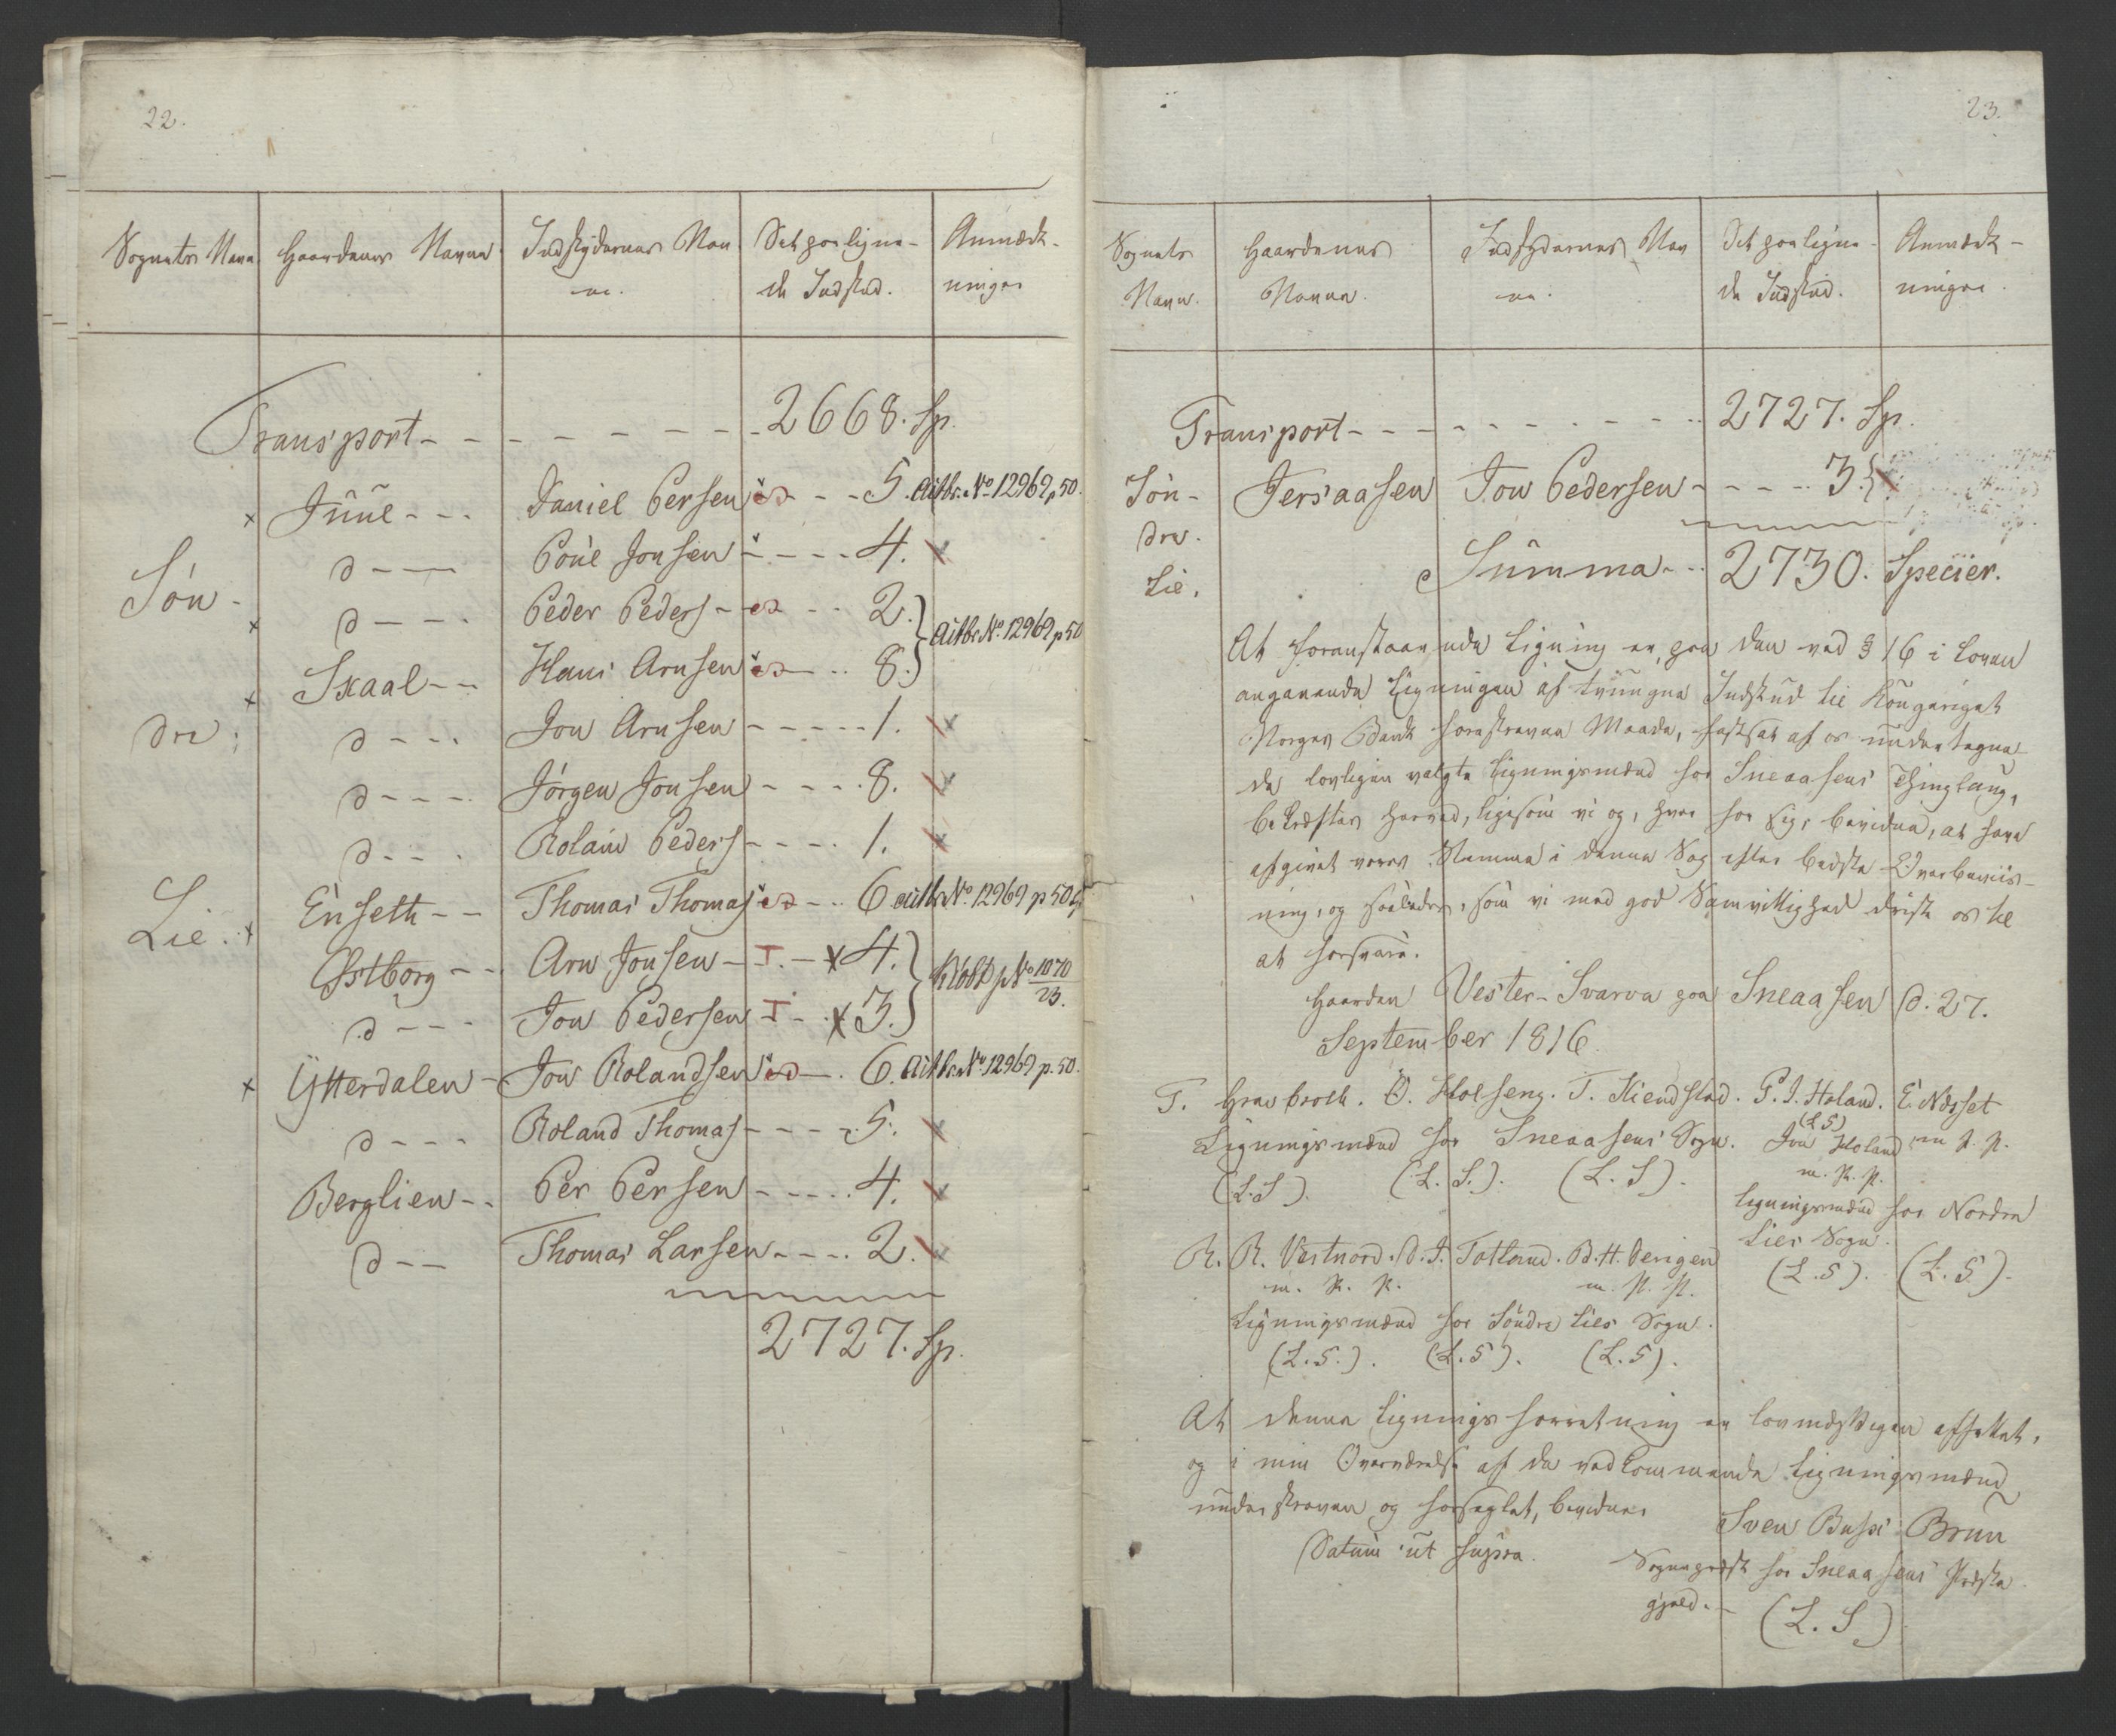 22.
Sognets Navn Gaardenes Navne Indskydernes Nav- Det paalign- Anmærk-
ne. de Indskud. ninger
Transport - - - - - - - - 2668. Sp.
x Juul - - - Daniel Persen - - 5. Actbr. No 12969 p. 50.
d - - Poul Jonsen - - - - 4.
Søn-
x d - - - Peder Peders - - - 2. } Actbr. No. 12969 p 50
x Skaal - - Hans Arnsen - - 8. }
dre d - - - Jon Arnsen - - - - - 1.
d - - - Jørgen Jonsen - - - - 8.
d - - - Roland Peders - - - - 1.
Enseth - - Thomas Thomas - - 6. actbr No. 12969 p 50
Lie. x
Østborg - - Arn Jonsen - I. - x 4. } No 1070
d - - - Jon Pedersen - I - x 3. } 23.
x Ytterdalen - Jon Rolandsen - 6. Actbr. No. 12969 p. 50.
d - - - Roland Thomas - - - - 5.
Berglien - - Per Persen - - - - - 4.
d - - Thomas Larsen - - - - 2.
2727. Sp.
23.
Sognets Gaardenes Indskydernes Nav- Det paalign- Anmærk-
Navn. Navne. ne. de Indskud. ninger.
Transport - - - - - - - - - 2727. Sp.
Søn- Jersaasen Jon Pedersen - - - - 3.
dre
Lie. Summa - - 2730. Specier.
At foranstaaende Ligning er, paa den ved § 16 i Loven
angaaende Ligningen af tvungne Indskud til Kongeriget
Norges Bank foreskrevne Maade, fastsat af os undertegne-
de lovligen valgte Ligningsmænd for Sneaasens Thinglaug,
bekræftes herved, ligesom vi og, hver for sig, bevidne, at have
afgivet vores Stemme i denne Sag efter bedste Overbeviis-
ning, og saaledes, som vi med god Samvittighed driste os til
at forsvare.
Gaarden Vester-Svarva paa Sneaasen d. 27.
September 1816.
T. Gravbroth. O. Holseng. T. Kiendstad. P. J. Holand. E. Næsset
(L S)
Ligningsmænd for Sneaasens Sogn. Jon Holand m. P. P.
m. P. P.
(L. S). (L. S.). (L. S).
Ligningsmænd for Nordre
Lies Sogn.
R. R. Vestnord. O. J. Totland. B. H. Devigen
m. P. P. m. P. P. (L. S). (L. S).
Ligningsmænd for Søndre Lies Sogn.
(L. S.). (L. S). (L. S).
At denne Ligningsforretning er lovmæssigen afholdt,
og i min Overværelse af de vedkommende Ligningsmænd
underskreven og forseglet, bevidner
Datum ut supra. Sven Busch Brun
Sognepræst for Sneaasens Præste-
gjeld. - (L. S)